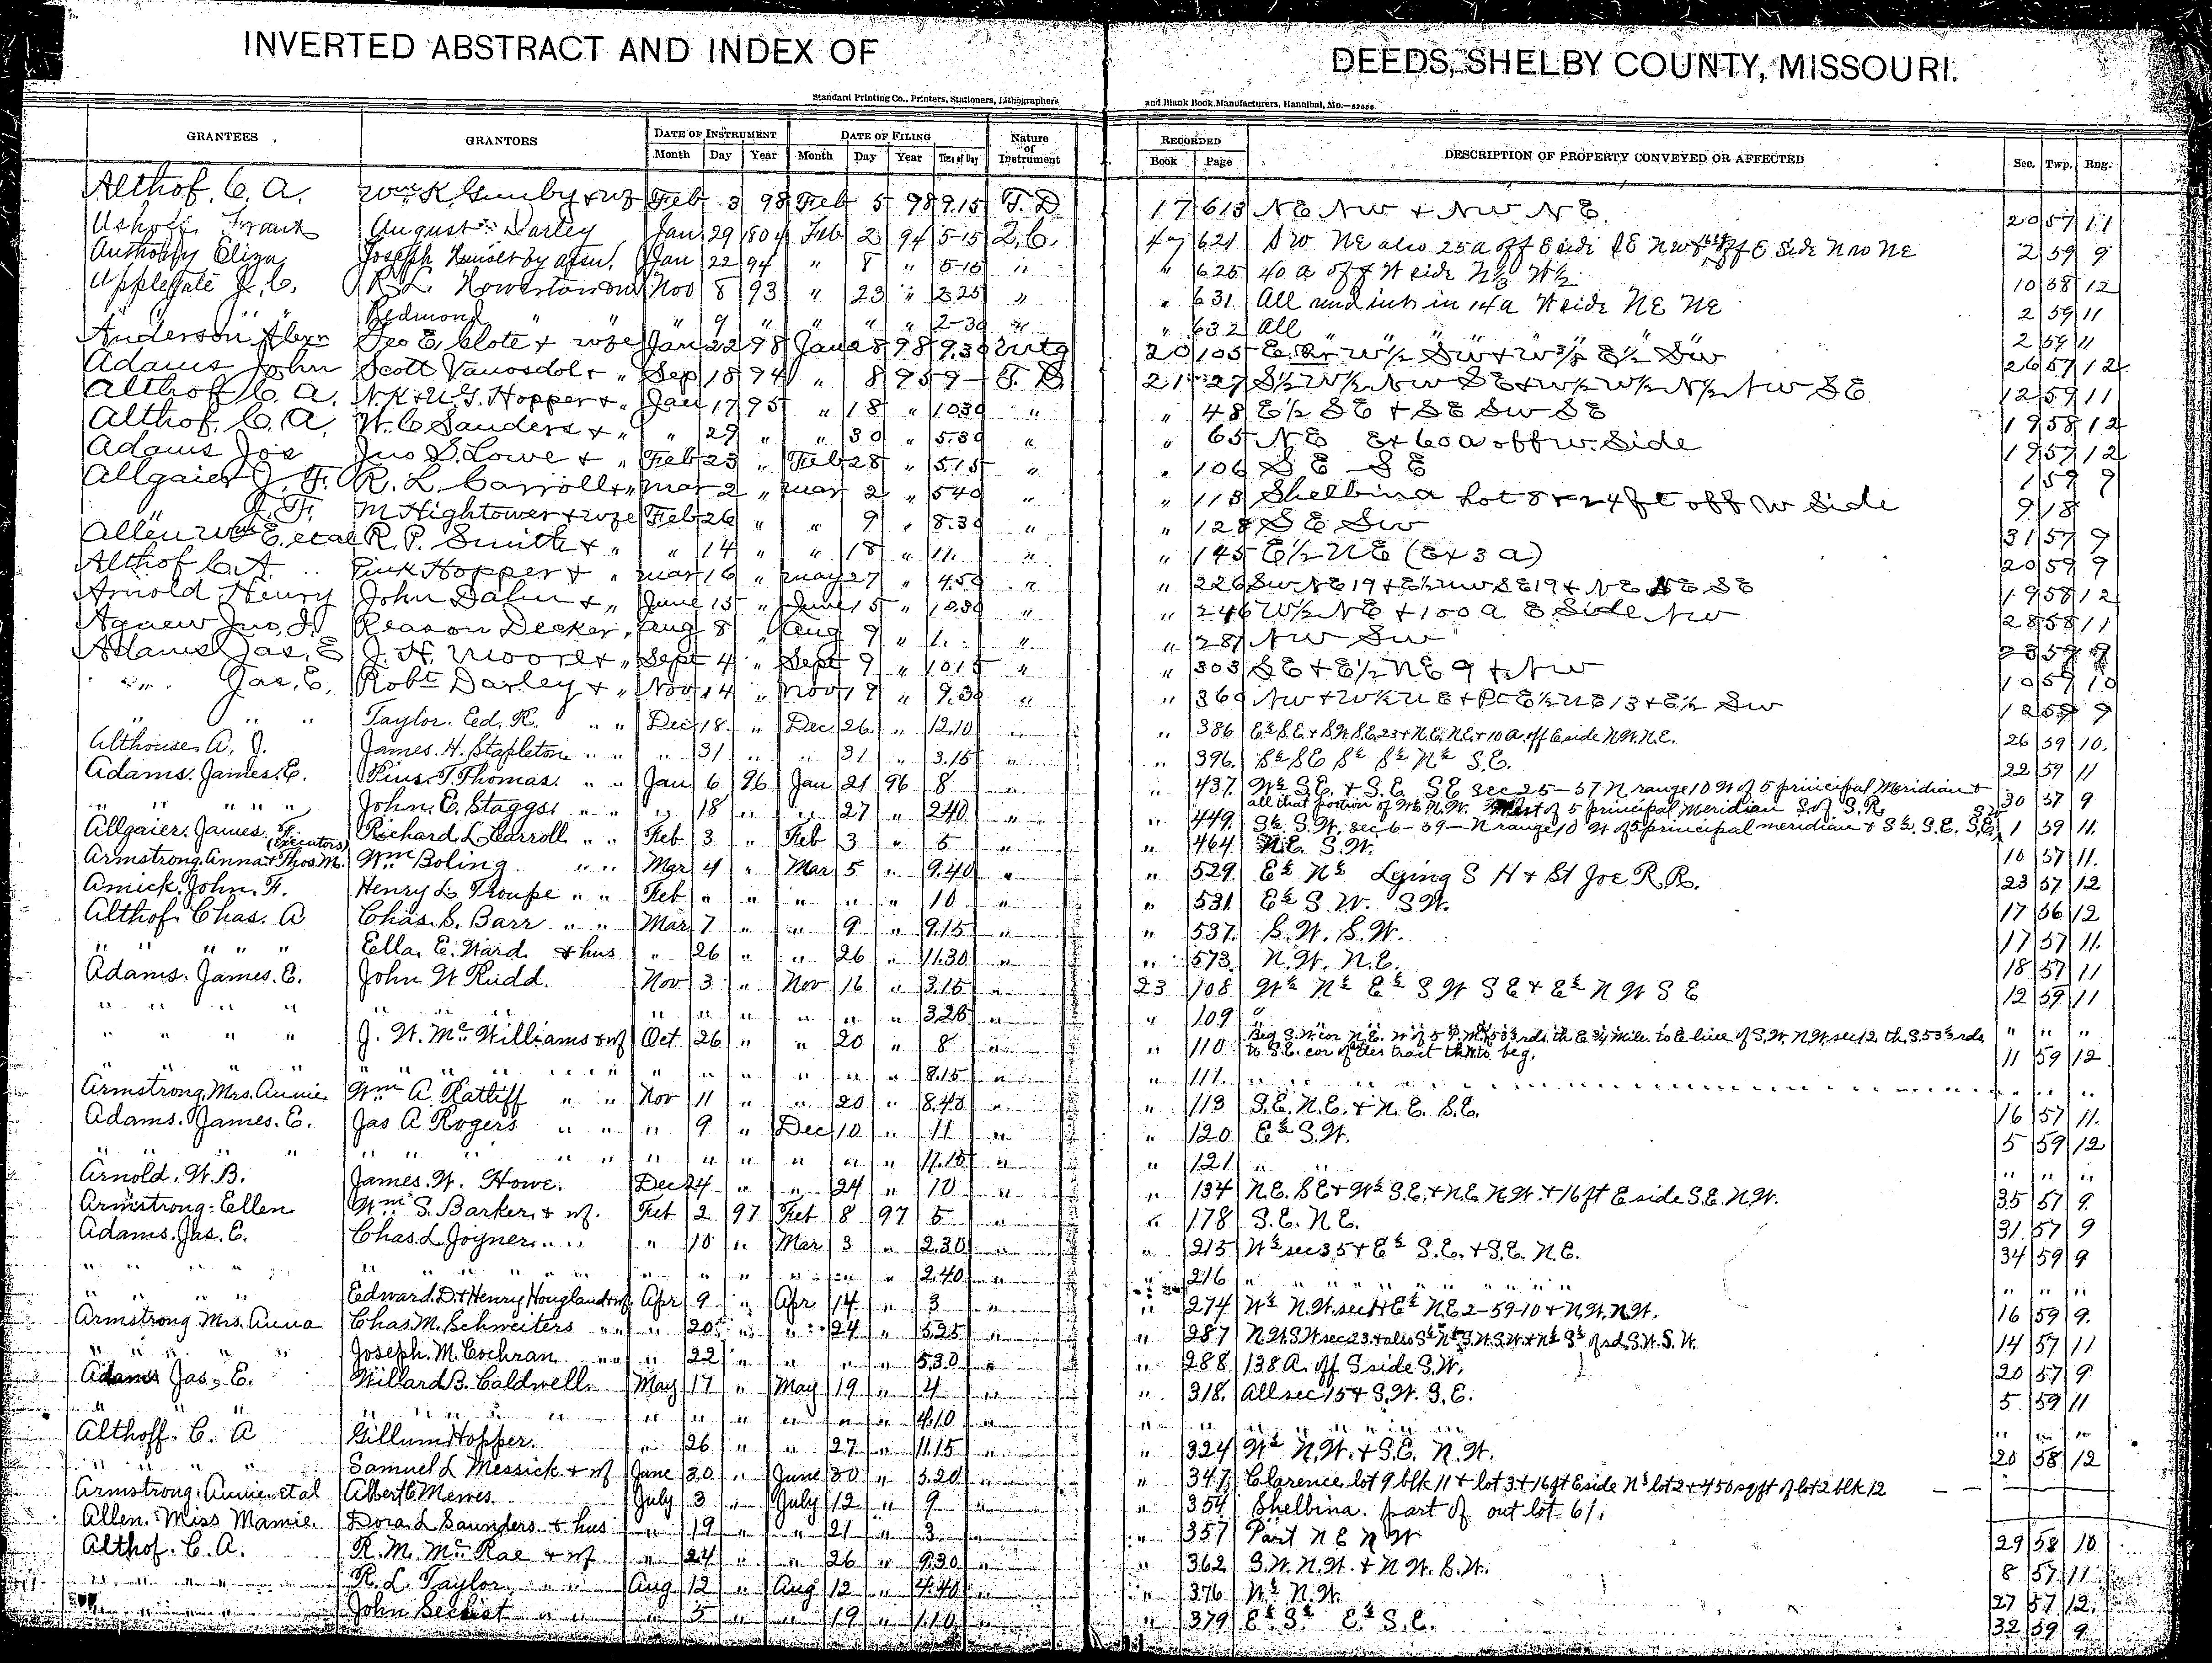 INVERTED ABSTRACT AND INDEX OF DEEDS, SHELBY COUNTY, MISSOURI.
Standard Printing Co., Printers, Stationers, Lithographers and Blank Book Manufacturers, Hannibal, Mo.
GRANTEES GRANTORS DATE OF INSTRUMENT DATE OF FILING Nature of Instrument RECORDED DESCRIPTION OF PROPERTY CONVEYED OR AFFECTED Sec. Twp. Rng.
Month Day Year Month Day Year Time of Day Book Page
Althof. C. A. Wm K. Gunby + wf Feb 3 98 Feb 5 98 9.15 T. D 17 613 NE NW + NW NE. 20 57 11
Frank August Darley Jan 29 Feb 2 94 5-15 47 621 SW NE also 25 a off E side SE NW 2 59 9
Anthony Eliza Joseph Jan 22 94 " 8 " 5-15 " " 625 40 a off W side 10 58 12
Applegate J. C. R L Nov 8 93 " 23 " 2 25 " " 631 All und int in 14 a W side NE NE 2 59 11
Redmond " " " 9 " " " " 2-30 " " 632 All " " " " " 2 59 11
Anderson Alexr Geo E. Clote + wife Jan 22 98 Jan 28 98 9.30 20 105 26 57 12
Adams John Scott Vanosdol + " Sep 18 94 " 8 95 9 - T. D 21 27 S½ W½ NW SE + W½ W½ N½ NW SE 12 59 11
Althof C. A. N.K + U.G. Hopper + " Jan 17 95 " 18 " 10 30 " " 48 E½ SE + SE SW SE 19 58 12
Althof. C. A. W. C Sanders + " " 29 " " 30 " 5.30 " " 65 NE Ex 60 a off w. Side 19 57 12
Adams Jos Jno S. Lowe + " Feb 23 " Feb 28 " 5.15 " " 106 SE SE 1 59 9
Allgaier J. F. R. L. Carroll + " Mar 2 " Mar 2 " 5 40 " " 113 Shelbina Lot 8 + 24 ft off W Side 9 18
" J. F. M Hightower + wife Feb 26 " " 9 " 8.30 " " 128 SE SW 31 57 9
Allen Wm E. et al R. P. Smith + " " 14 " " 18 " 11. " " 145 E½ NE (Ex 3 a) 20 59 9
Althof C. A. Hopper + " Mar 16 " May 27 " 4.50 " " 226 SW NE 19 + E½ NW SE 19 + NE NE SE 19 58 12
Arnold Henry John Dahn + " June 15 " June 15 " 10.30 " " 246 W½ NE + 100 a. E Side NW 28 58 11
Agnew Jno. J. Reason Decker " Aug 8 " Aug 9 " 1. " " 281 NW SW
Adams Jas. E J. H. Moore + " Sept 4 " Sept 9 " 10 15 " " 303 SE + E½ NE 9 + NW 10 59 10
" " Jas. E. Robt Darley + " Nov 14 " Nov 19 " 9.30 " " 360 NW + W½ NE + Pt E½ NE 13 + E½ SW 12 59 9
" " " Taylor. Ed. R. " " Dec 18. " Dec 26. " 12.10 " " 386 E½ S.E. + S.W. S.E. 23 + N.E. N.E. + 10 a. off E side N.W. N.E. 26 59 10.
Althouse A. J. James. H. Stapleton " " " 31 " " 31 " 3.15 " " 396. S½ SE S½ S½ N½ S.E. 22 59 11
Adams. James. E. Pius. T. Thomas. " " Jan 6 96 Jan 21 96 8 " " 437. W½ S.E. + S.E. SE sec 25-57 N range 10 W of 5 principal Meridian + 30 57 9
all that portion of W½ N.W. West of 5 principal Meridian S. of S.R.
" " " " John. E. Staggs. " " " 18 " " 27 " 2.40 " " 449. S½ S.W. sec 6-59-N range 10 W of 5 principal meridian + S½ S.E. S.E. 1 59 11.
Allgaier. James. F. Richard L. Carroll " " Feb 3 " Feb 3 " 5 " " 464. N.E. S.W. 10 57 11.
(Executors)
Armstrong. Anna + Thos. M. Wm Boling " " Mar 4 " Mar 5 " 9.40 " " 529. E½ N½ Lying S H + St Joe R.R. 23 57 12
Amick. John. F. Henry L Troupe " " Feb " " " " " 10 " " 531. E½ S.W. S.W. 17 56 12
Althof. Chas. A Chas. S. Barr " " Mar 7 " " 9 " 9.15 " " 537. S.W. S.W. 17 57 11.
" " " " Ella. E. Ward. + hus " 26 " " 26 " 11.30 " " 573. N.W. N.E. 18 57 11
Adams. James. E. John W Rudd. Nov 3 " Nov 16 " 3.15 " 23 108 W½ N½ E½ S W S E + E½ N W S E 12 59 11
" " " " " " " " " " " " 3.26 " " 109 " " " "
Beg S.W. cor N.E. W of 5 P.M. 53⅓ rds. th E ¾ Mile. to E line of S.W. N.W. sec 12 th S. 53⅓ rds.
" " " " J. W. McWilliams + wf Oct 26 " " 20 " 8 " " 110 to S.E. cor of tract th W to beg. 11 59 12
" " " " " " " " " " " " 8.15 " " 111. " " " " " "
Armstrong. Mrs. Annie Wm A Ratliff " " Nov 11 " " 20 " 8.40 " " 113 S.E. N.E. + N.E. S.E. 16 57 11.
Adams. James. E. Jas A Rogers " " " 9 " Dec 10 " 11 " " 120 E½ S.W. 5 59 12
" " " " " " " " " " " " 11.15 " " 121 " " " " "
Arnold. W. B. James. W. Howe. Dec 24 " " 24 " 10 " " 134 N.E. S.E + W½ S.E. + N.E. N.W. + 16 ft E side S.E. N.W. 35 57 9.
Armstrong. Ellen Wm S. Barker. + wf. Feb 2 97 Feb 8 97 5 " " 178 S.E. N E. 31 57 9
Adams. Jas. E. Chas. L Joyner. " " " 10 " Mar 3 " 2.30 " " 215 W½ sec 35 + E½ S.E. + S.E. N.E. 34 59 9
" " " " " " " " " " " " 2.40 " " 216 " " " " " "
" " " " Edward. D. + Henry Hougland + wf Apr 9 " Apr 14 " 3 " " 274 W½ N.W. sec 1 + E½ N.E 2-59-10 + N.W. N.W. 16 59 9.
Armstrong Mrs. Anna Chas. M. Schweiters " " " 20 " " 24 " 5.25 " " 287 N.W. S.W. sec 23. + also S½ N½ S.W. S.W. + N½ S½ of sd. S.W. S.W. 14 57 11
" " " " Joseph. M. Cochran " " " 22 " " " " 5.30 " " 288 138 A. off S side S.W. 20 57 9
Adams Jas. E. Willard. B. Caldwell. May 17 " May 19 " 4 " " 318. All sec 15 + S.W. S.E. 5 59 11
" " " " " " " " " " " " 4.10 " " " " " " " " "
Althoff. C. A Gillum Hopper. " 26 " " 27 " 11.15 " " 324 W½ N.W. + S.E. N.W. 20 58 12
" " " " Samuel L Messick + wf June 30 " June 30 " 5.20 " " 347. Clarence lot 9 blk 11 + lot 3 + 16 ft E side N½ lot 2 + 450 sq ft of lot 2 blk 12 — —
Armstrong. Annie et al Albert C Mewes. July 3 " July 12 " 9 " " 354 Shelbina. part of out lot 61.
Allen. Miss Mamie. Dora. L Saunders. + hus " 19 " " 21 " 3 " " 357 Part N E N W 29 58 10
Althof. C. A. R. M. McRae + wf " 24 " " 26 " 9.30 " " 362 S.W. N.W. + N.W. S.W. 8 57 11
" " " " R. L. Taylor " " Aug 12 " Aug 12 " 4.40 " " 376 W½ N.W. 27 57 12.
" " " " John Sechist " " " 5 " " 19 " 1.10 " " 379 E½ S½ E½ S.E. 32 59 9